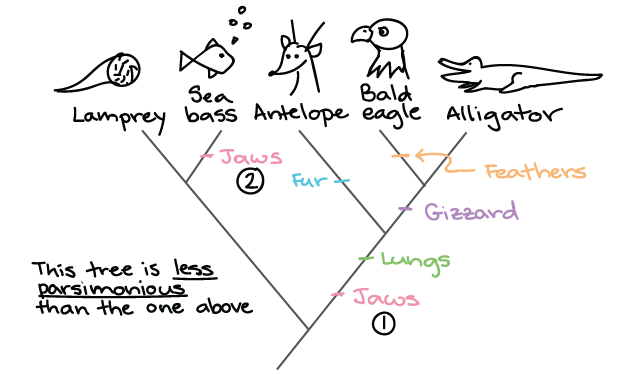 Lamprey
Sea
bass
Antelope
Bald
eagle
Alligator
Jaws
②
Fur
Feathers
Gizzard
Lungs
Jaws
①
This tree is less
parsimonious
than the one above